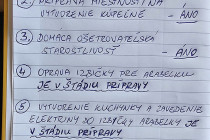 2.) PRÍPRAVA MIESTNOSTI NA
VYTVORENIE KÚPEĽNE - ÁNO
3.) DOMÁCA OŠETROVATEĽSKÁ
STAROSTLIVOSŤ - ÁNO
4.) OPRAVA IZBIČKY PRE ARABELKU
JE V ŠTÁDIU PRÍPRAVY
5.) VYTVORENIE KUCHYNKY A ZAVEDENIE
ELEKTRINY DO IZBIČKY ARABELKY JE
V ŠTÁDIU PRÍPRAVY